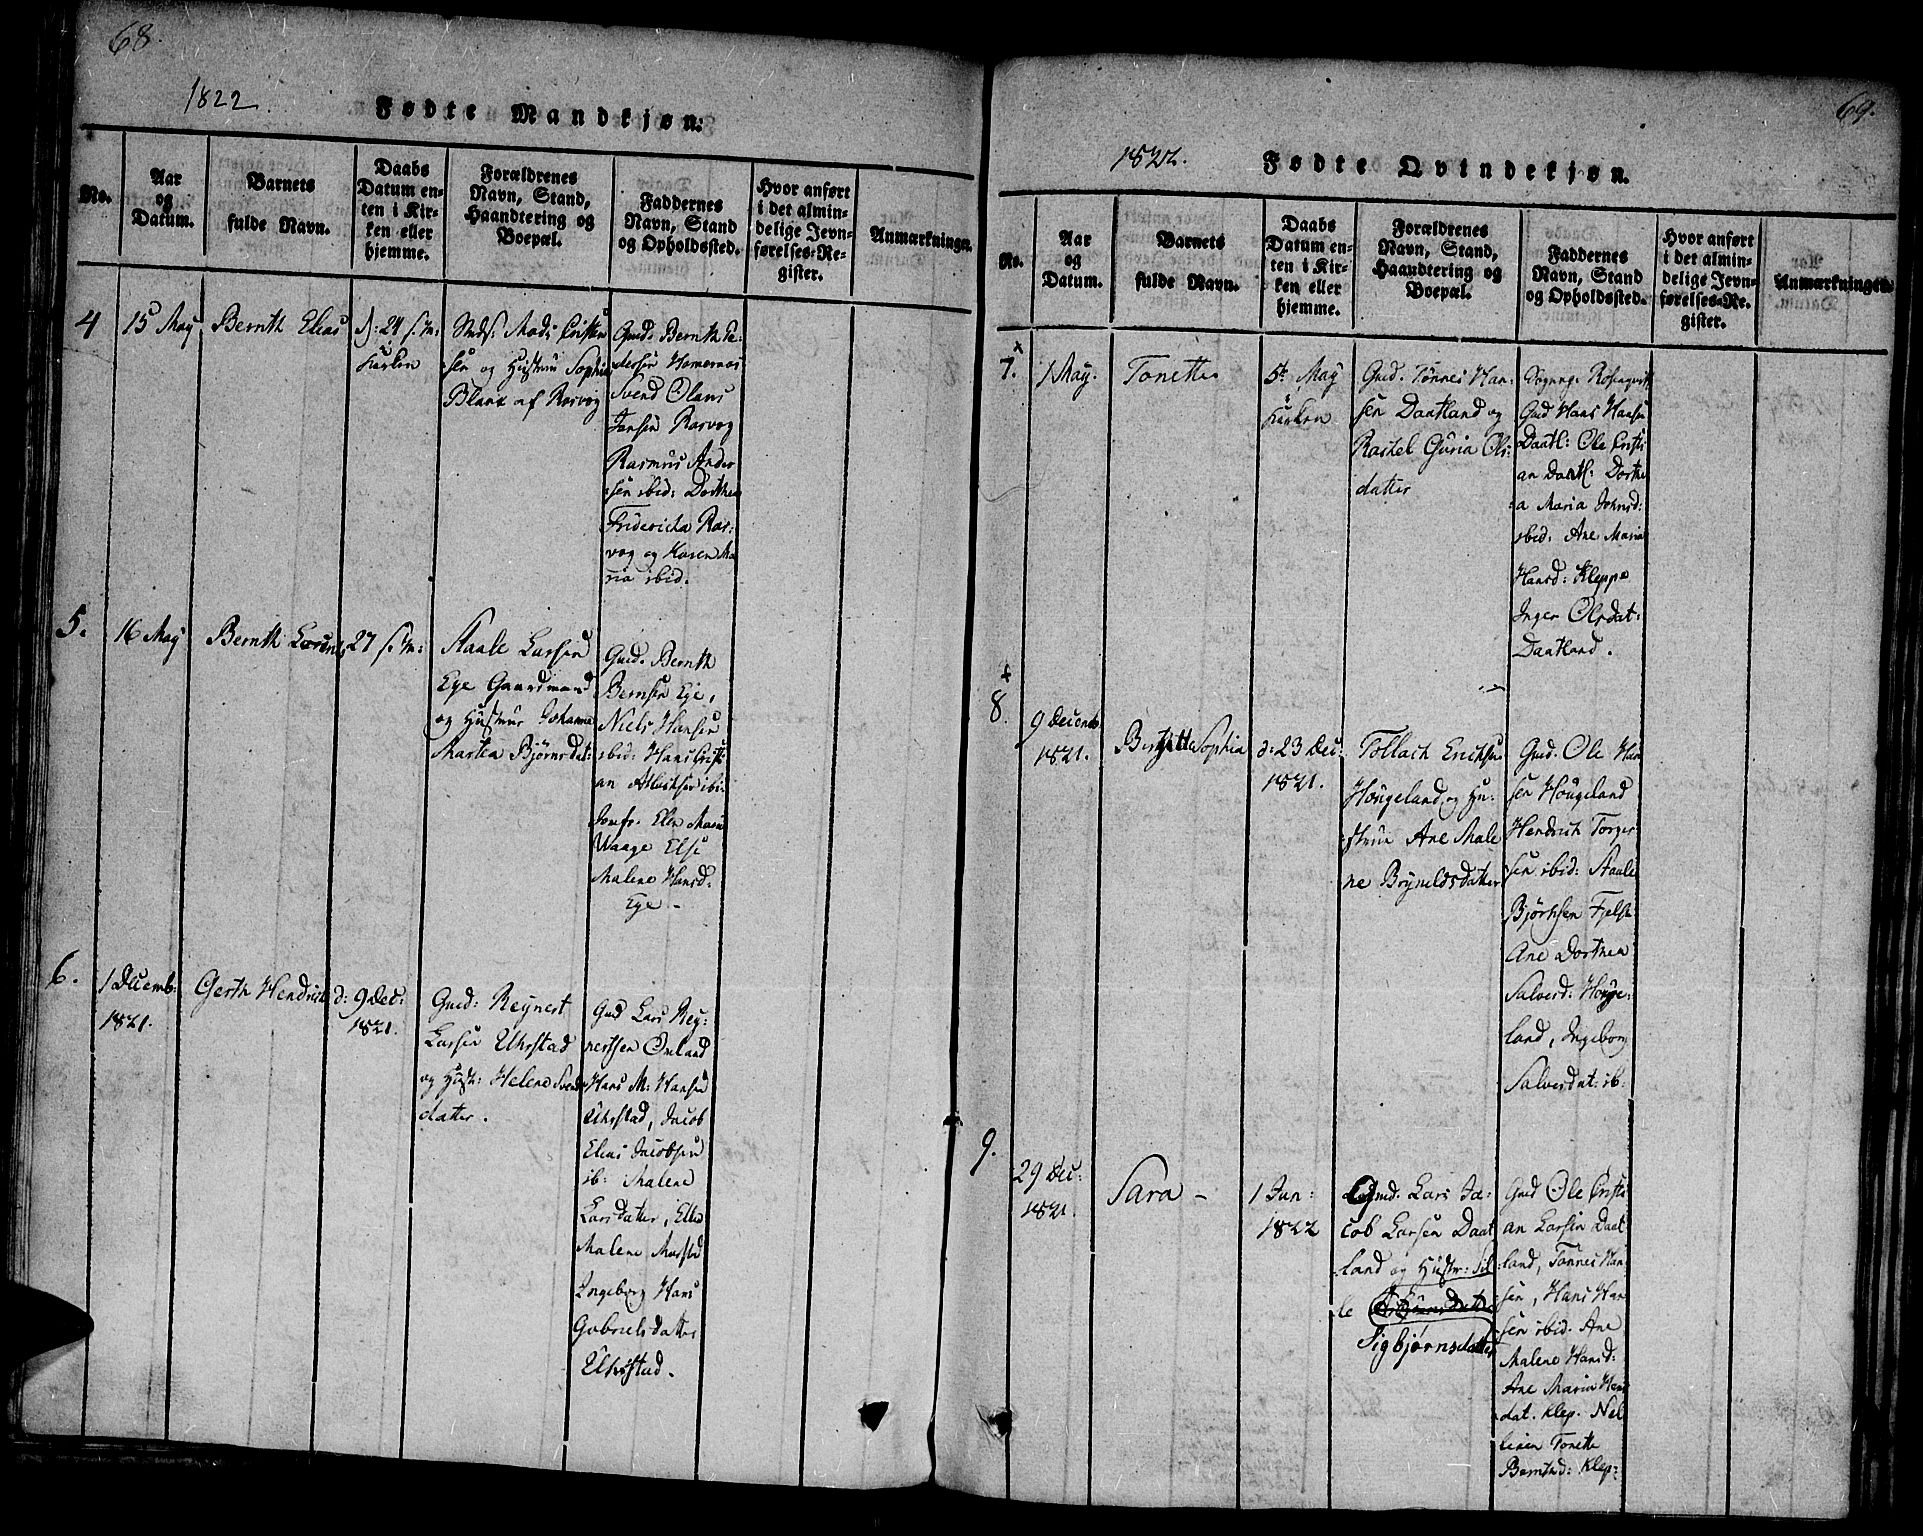 68.
1822.
Fødte Mandkjøn.
No.
Aar
og
Datum.
Barnets
fulde Navn.
Daabs
Datum en-
ten i Kir-
ken eller
hjemme.
Forældrenes
Navn, Stand,
Haandtering og
Boepæl.
Faddernes
Navn, Stand
og Opholdssted.
Hvor anført
i det almin-
delige Jevn-
førelses-Re-
gister.
Anmærkninger.
4
15 May
Bernth Elias
og Hustrue Sophia
Blank af Rasvog
Gmd. Bernth Pe-
dersen
Svend Olaus
Jansen Rasvog
Rasmus Ander
sen ibid: Dorthea
Friedericka Ras:
vog og Karen Ma
ria ibid.
5.
16 May
Bernth Lorents
27 s. m:
Staale Larsen
Ege Gaardmand
og Hustrue Johanne
Martea Bjørnsdat:
Gmd. Bernth
Bernsen Ege,
Niels Hansen
ibid: Hans Cristi
an
Jomfr. Elen Maria
Waage Else
Malene Hansd.
Ege -
6.
1 Decemb:
1821.
Gerth Hendrich
d: 9 Dec:
1821.
Gmd: Reynert
Larsen Uhrstad
og Hust: Helene Svends
datter.
Gmd Lars Rey:
nertsen Ørland
Hans M: Hansen
Uhrstad, Jacob
Elias Jacobsen
ib: Malene
Larsdatter, Ellen
Malene
Ingeborg Hans
Gabrielsdatter
Uhrstad.
69.
1822.
Fødte Qvindekjøn.
No.
Aar
og
Datum.
Barnets
fulde Navn.
Daabs
Datum en-
ten i Kir-
ken eller
hjemme.
Forældrenes
Navn, Stand,
Haandtering og
Boepæl.
Faddernes
Navn, Stand
og Opholdssted.
Hvor anført
i det almin-
delige Jevn-
førelses-Re-
gister.
Anmærkninger.
7.
1 May.
Tonette
5te May
i Kirken
Gmd. Tønnes Han:
sen Daatland og
Rachel Guria Ols:
datter
Sognpr. Rosenqvist
Gmd Hans Hansen
Daatl: Ole Cristi
an Daatl: Dorthe
a Maria Johnsd:
ibid: Ane Maria
Hansd: Kleppe
Inger Olsdat:
Daatland.
8.
9 Decemb.
1821.
Birgitta Sophia
d: 23 Dec:
1821.
Tollach Erichsen
Hougeland og Hu:
strue Ane Male
ne Brynildsdatter
Gmd. Ole Han
sen Hougeland
Hendrich Torger
sen ibid: Staale
Bjørnsen Fjelse
Ane Dorthea
Salvesd: Houge:
land, Ingeborg
Salvesdat: ib:
9.
29 Dec:
1821.
Sara -
1 Jan:
1822
Gmd. Lars Ja:
cob Larsen Daat
land og Hustr: Sil
le
Sigbjørnsdatter
Gmd Ole Cristi
an Larsen Daat
land, Tønnes Han
sen, Hans Han
sen ibid. Ane
Malene Hansd:
Ane Maria Hans
dat. Klep.
Tonette
Berntsd: Klep: